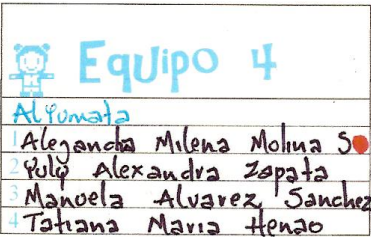 Equipo 4
Al Yumata
1 Alejandra Milena Molina S
2 Yuly Alexandra Zapata
3 Manuela Alvarez Sanchez
4 Tatiana Maria Henao